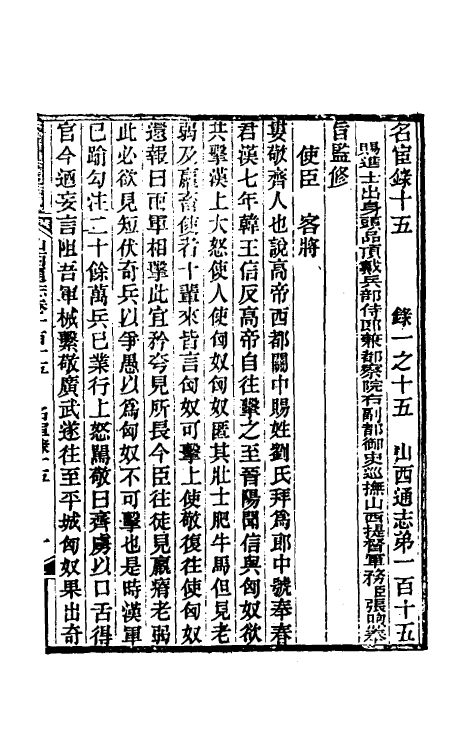 名宦錄十五　錄一之十五　山西通志弟一百十五
賜進士出身頭品頂戴兵部侍郎兼都察院右副都御史巡撫山西提督軍務臣張煦奉
旨監修
使臣　客將
婁敬齊人也說高帝西都關中賜姓劉氏拜爲郎中號奉春
君漢七年韓王信反高帝自往擊之至晉陽聞信與匈奴欲
共擊漢上大怒使人使匈奴匈奴匿其壯士肥牛馬但見老
弱及羸畜使者十輩來皆言匈奴可擊上使敬復往使匈奴
還報曰兩軍相擊此宜矜夸見所長今臣往徒見羸瘠老弱
此必欲見短伏奇兵以爭愚以爲匈奴不可擊也是時漢軍
已踰勾注二十餘萬兵已業行上怒罵敬曰齊虜以口舌得
官今迺妄言阻吾軍械繫敬廣武遂往至平城匈奴果出奇
山西通志卷一百十五　名宦錄十五　一